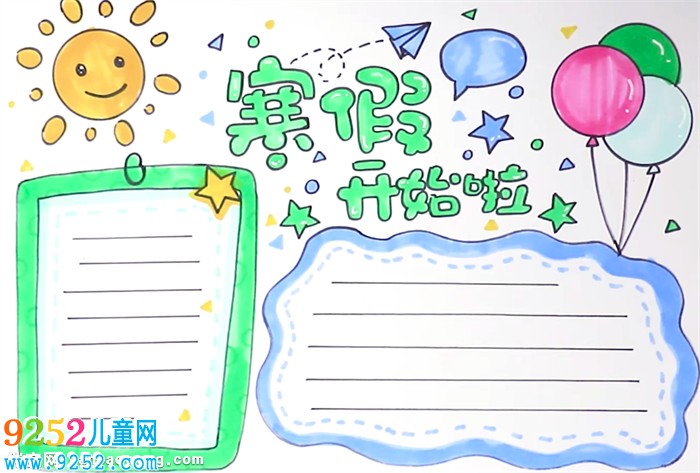 寒假
开始啦
9252儿童网
www.9252.com